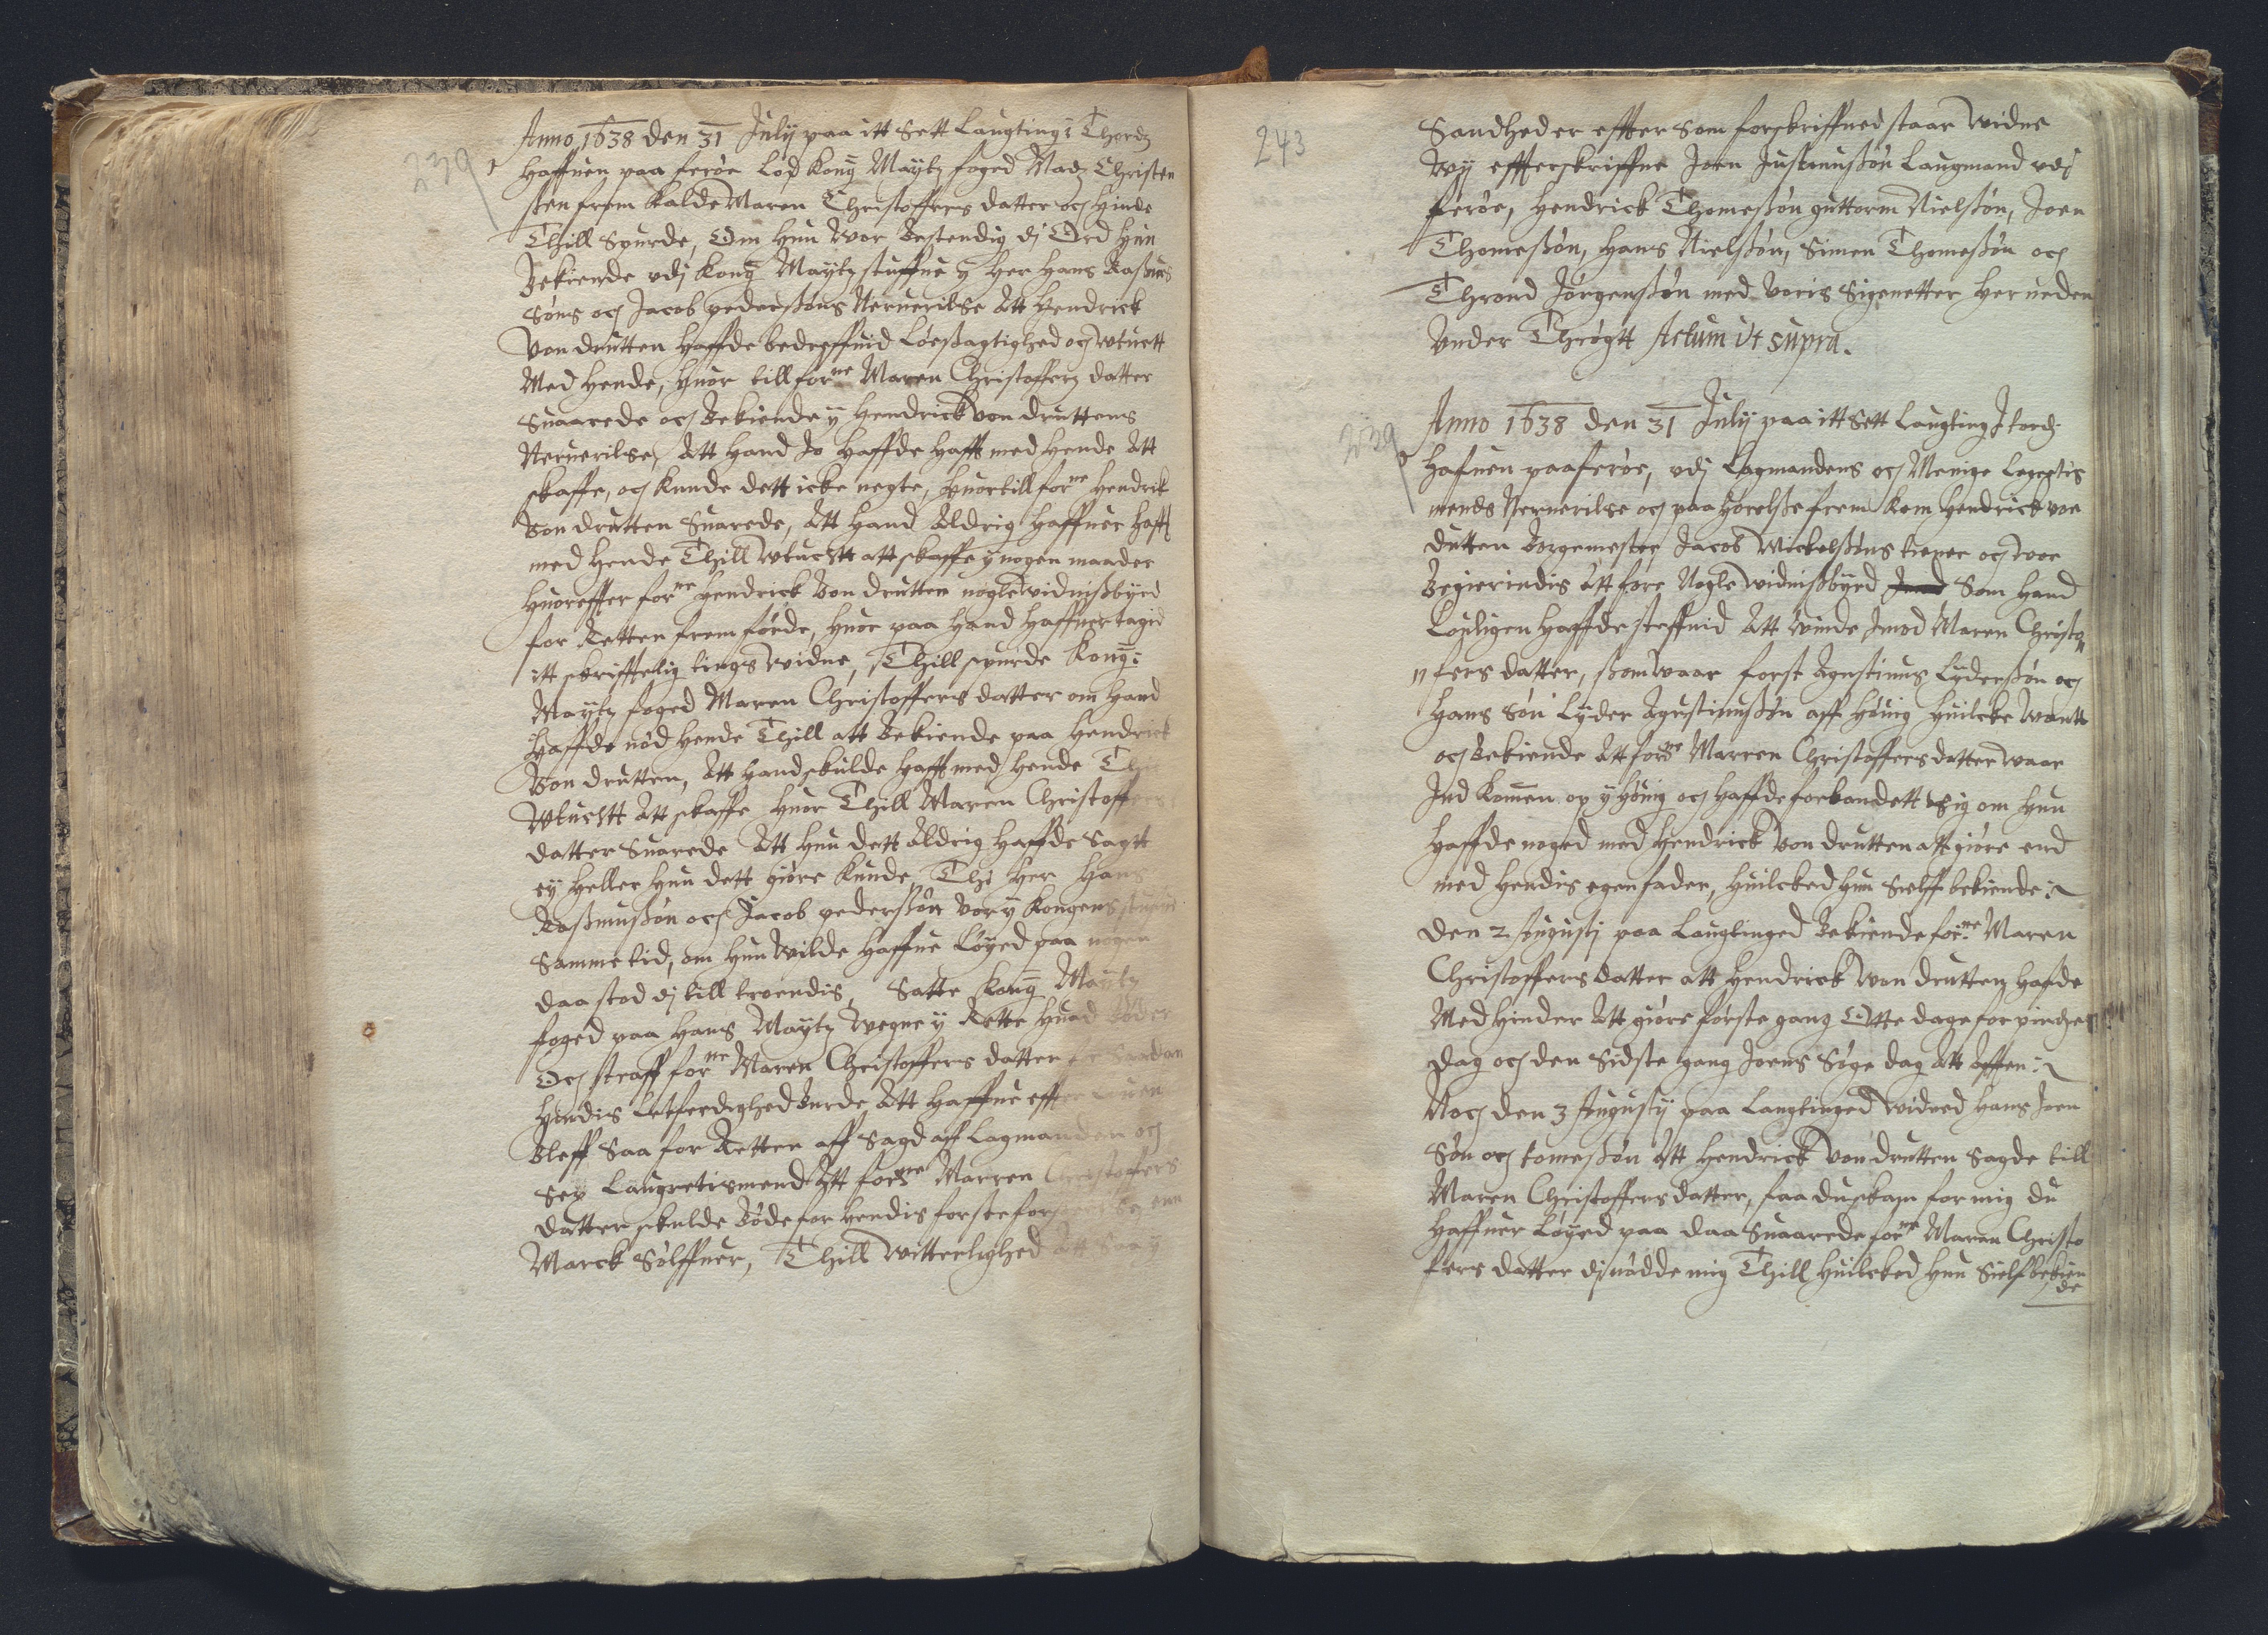 239
Anno 1638 den 31 July paa itt Sett Laugting i Thordz
Haffuen paa feröe Lod Kong Maytz foged Madz Christen
ßen frem kalde Maren Christoffers datter och hinde
Thill Spurde, Om hun Wor Bestendig di Ord hun
Bekiende vdj Kong Maytz stuffue y Her Hans Raßmus
Söns och Jacob pederßöns Neruerilse Att Hendrick
Von drutten haffde bedreffuid Löeßagtighed och vtuctt
Med hende, huor till forne Maren Christofferz datter
Suaarede och Bekiende y Hendrick von druttens
Neruerilse, Att hand Jo haffde hafft med hende Att
skaffe, och kunde dett icke negte, Huortill forne Hendrik
Von drutten Suarede, Att hand Aldrig haffuer hafft
med hende Thill Wtuchtt att skaffe y nogen maader
Huoreffter forne Hendrick Von drutten nogle widnißbyrd
for Retten frem förde, huor paa hand haffuer tagid
itt skrifftelig tings widne, Thill spurde Kong:
Maytz foged Maren Christoffers datter om hand
Haffde nöd hende Thill att Bekiende paa Hendrick
Von drutten, Att hand skulde hafft med hende
Wtuchtt Att skaffe Huor Thill Maren Christoffers
datter Suarede Att hun dett Aldrig haffde Sagtt
ey heller hun dett giöre kunde, Thi Her Hans
Raßmußön och Jacob pederßön Vor y Kongens
Samme tid, om hun Wilde haffue Löyed paa nogen
daa stod di till troendis, Satte Kong Maytz
foged paa Hans Maytz Wegne y Rette Huad Böder
Och straff forne Maren Christoffers datter for Saadan
Hendis Letferdighed Burde Att haffue effter Louen
Bleff Saa for Retten aff Sagd aff Lagmanden och
Sex Laugretismend Att forne Marren Christoffers
datter skulde Böde for hendis forste for enn
Marck Sölffuer, Thill Witterlighed Att Saa y
243
Sandhed er effter Som forskriffued staar Widne
Wy effterskriffne Joen Justinußön Laugmand vdj
feröe, Hendrick Thomeßön guttorm Nielßön, Joen
Thomeßön, Hans Nielßön, Simen Thomeßön och
Thrond Jörgenßön med Voris Signetter her neden
Vnder Thrögtt Actum Vt supra.
239
Anno 1638 den 31 July paa itt Sett Laugting J tordz
hafuen paa feröe, vdj Lagmandens och Menige
mends Neruerilse och paa hörelße frem kom Hendrick von
dutten Borgemester Jacob Wickelßöns tiener och war
Begierindis Att före Nogle widnißbyrd Som hand
Louligen haffde steffnid Att Winde Jmod Maren Christo
fers datter, ßom waar forst Agustinus Lyderßön och
Hans Sön Lyder Agustinußön aff Höuig huilcke Wantt
och Bekiende Att forne Marren Christoffers datter waar
Jnd komen op y Höuig och haffde forbandett Sig om hun
haffde noged med Hendrick Von drutten att giöre end
med hendis egen fader, huilcked hun Sielff bekiende
Den 2 Augustj paa Laugtinged Bekiende forne Maren
Christoffers datter att Hendrick Von drutten hafde
Med hinder Att giöre förste gang Otte dage for pindze
dag och den Sidste gang Joens Söge dag Att afften
Noch den 3 Augusty paa Laugtinged Widned Hans Joen
Sön och tomeßön Att Hendrick Von drutten Sagde till
Maren Christoffers datter, faa du skam for mig du
haffuer Löyed paa daa Suaarede forne Maren Christo
fers datter di nödde mig Thill huilcked hun Sielf bekien
de